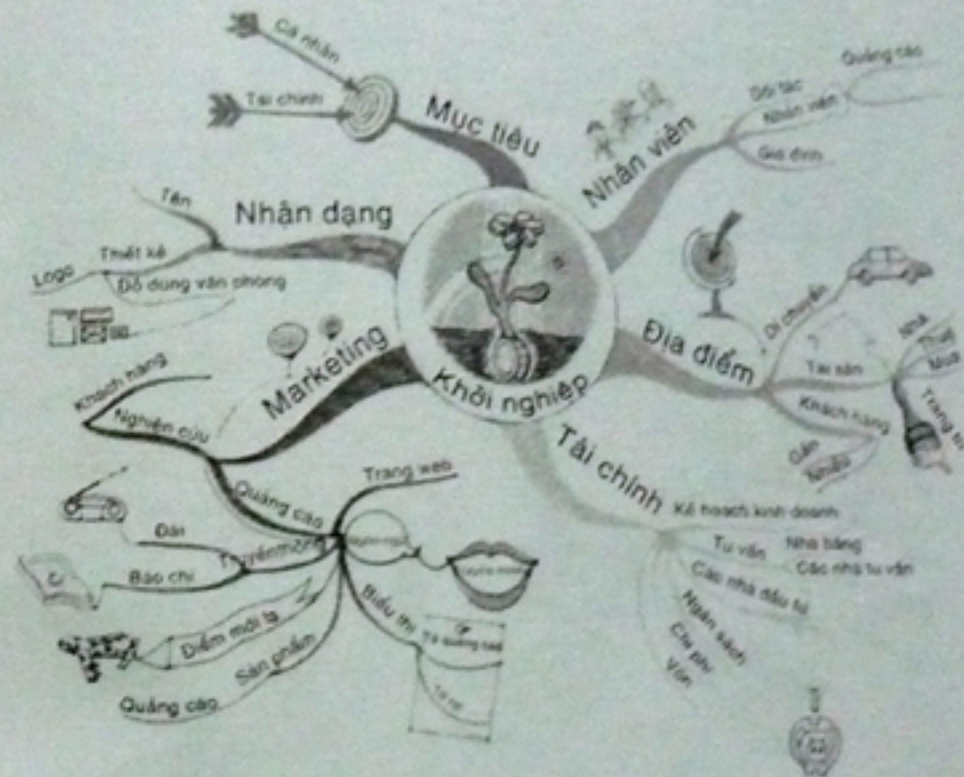 Khởi nghiệp
Mục tiêu
Cá nhân
Tài chính
Nhân viên
Đối tác
Nhân viên
Quảng cáo
Gia đình
Địa điểm
Di chuyển
Tài sản
Thuê
Mua
Trang trí
Khách hàng
Gần
Nhiều
Tài chính
Kế hoạch kinh doanh
Tư vấn
Nhà băng
Các nhà tư vấn
Các nhà đầu tư
Ngân sách
Chi phí
Vốn
Marketing
Nghiên cứu
Khách hàng
Quảng cáo
Trang web
Truyền thông
Đài
Báo chí
Điểm mới lạ
Sản phẩm
Quảng cáo
Biểu thị
Tờ rơi
Nhận dạng
Tên
Thiết kế
Logo
Đồ dùng văn phòng